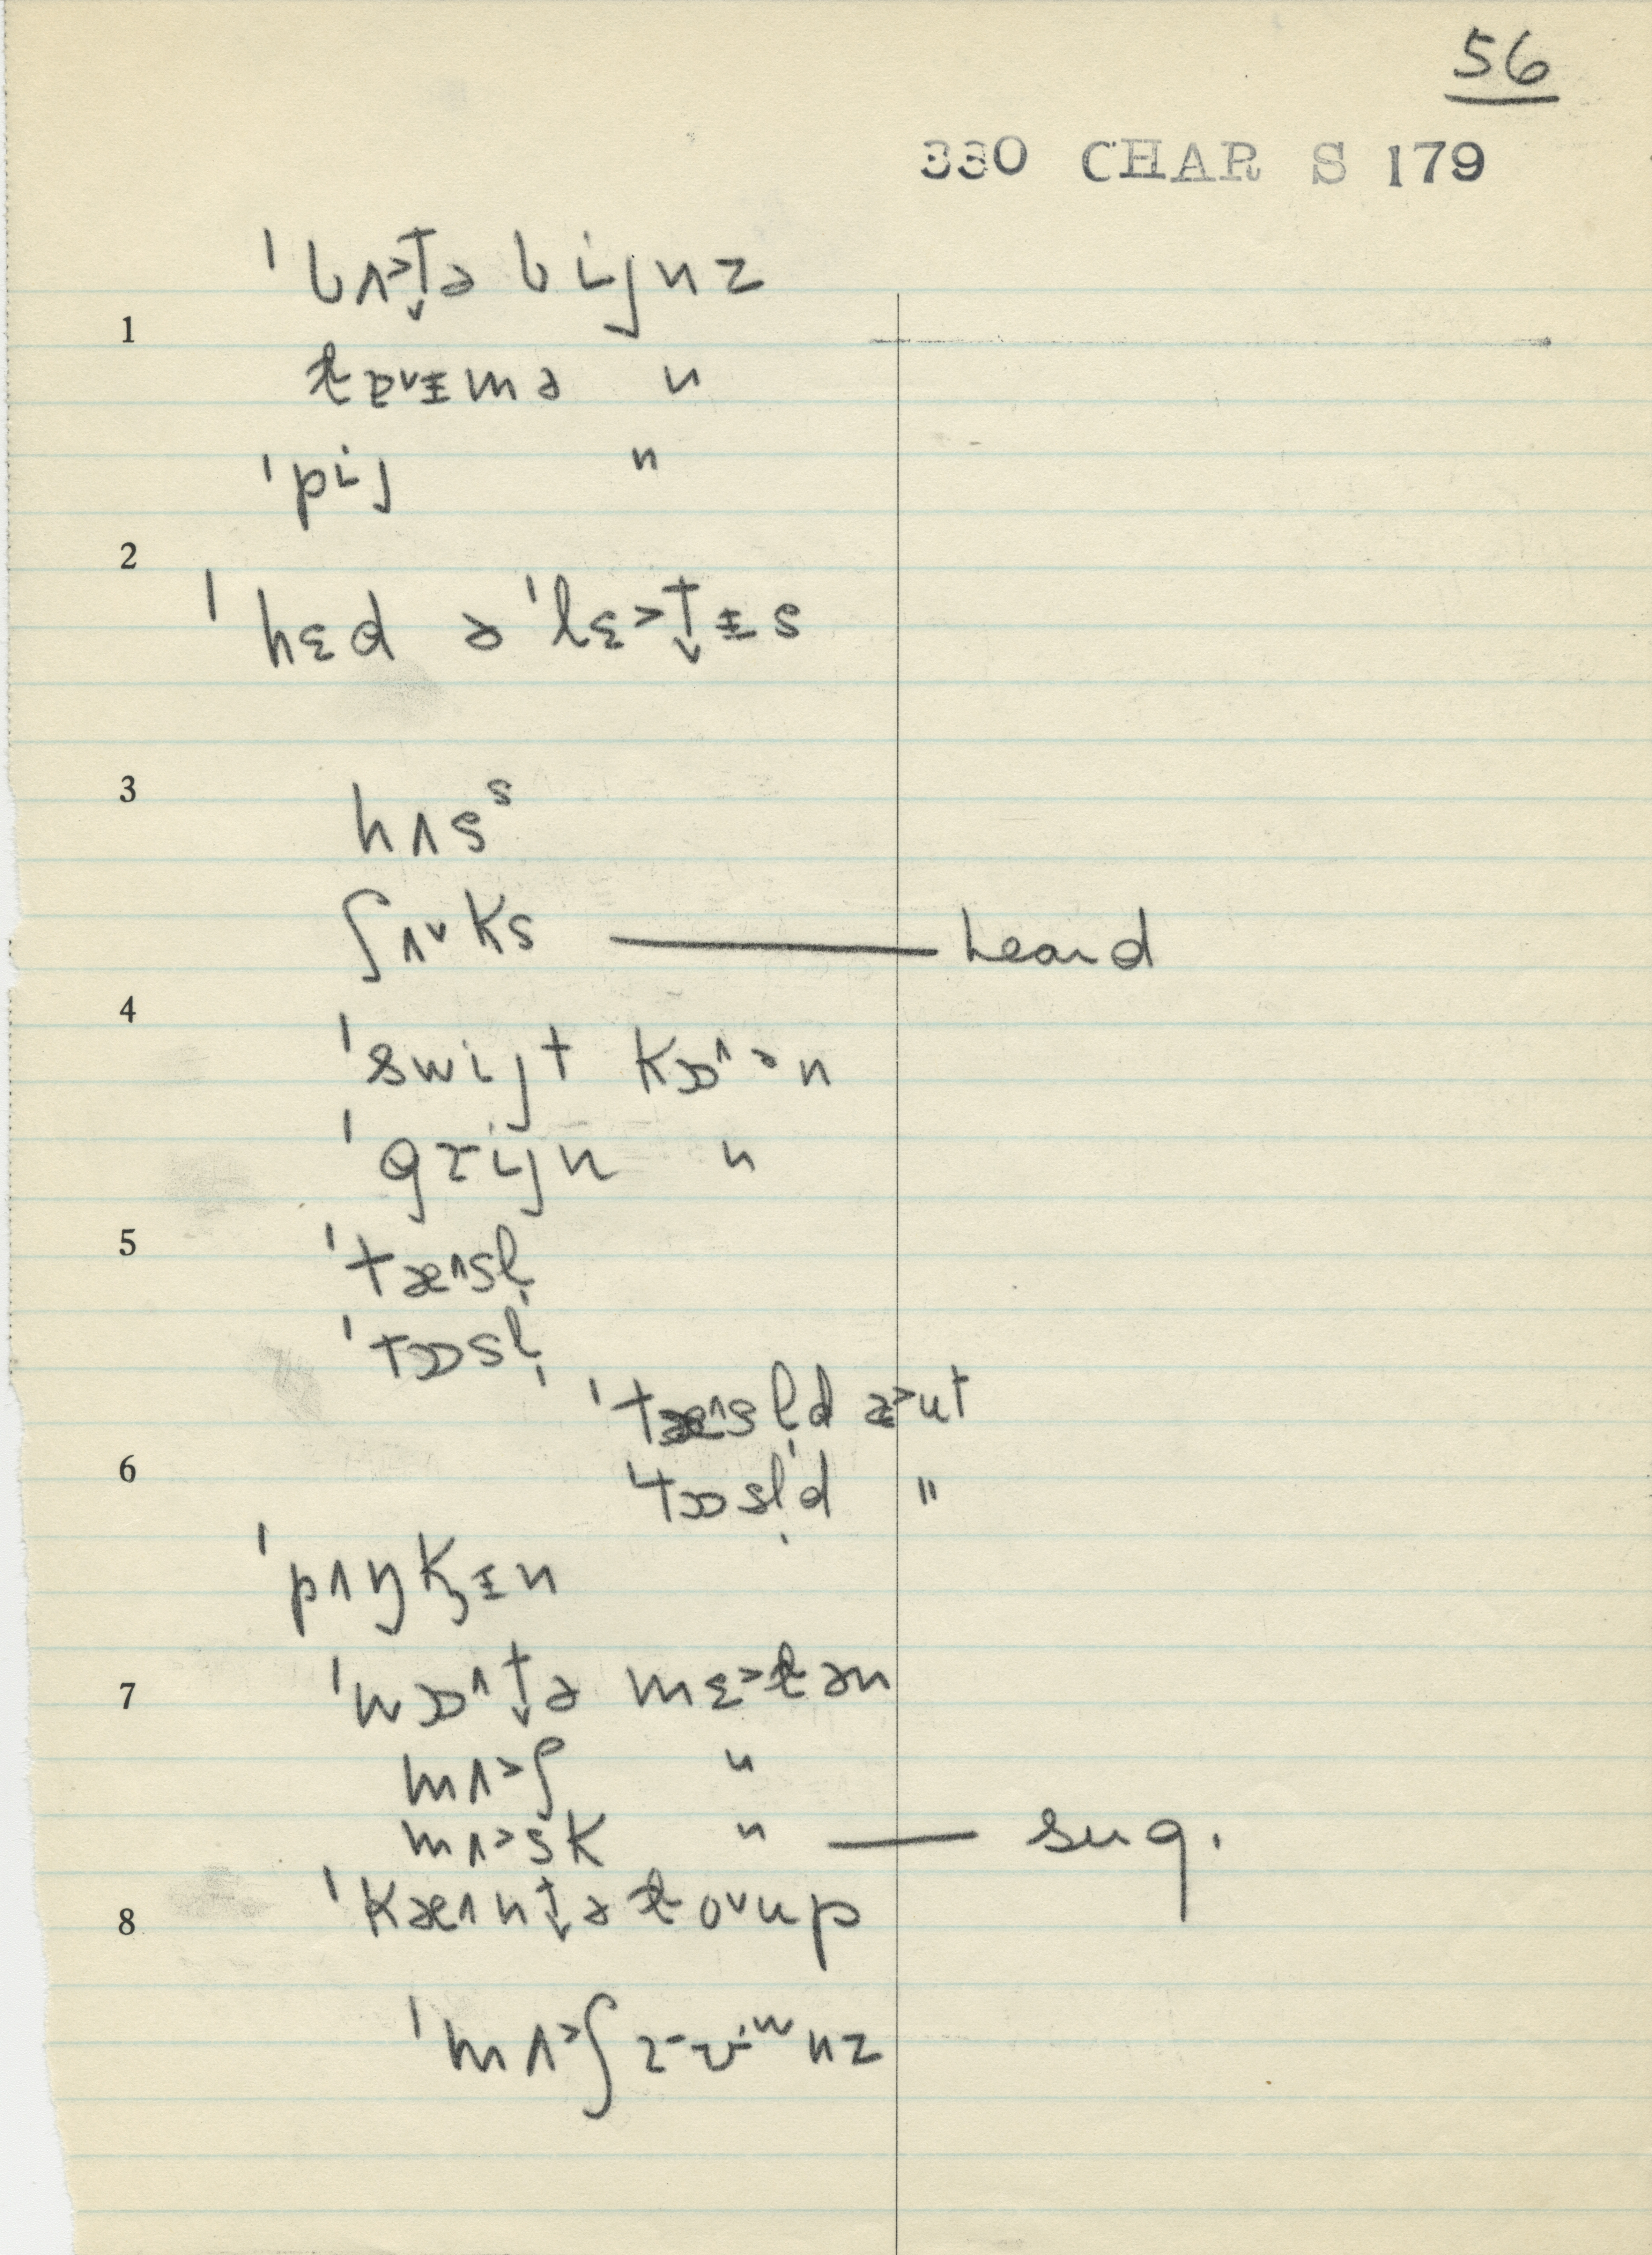 56
330 CHAR S 179
ˈbʌ˃t̬ə bijnz
1
t̴ɐ˅ɪmə "
ˈpij "
2
ˈhɛd ə ˈlɛ˃t̬ɪs
3
hʌsˢ
ʃʌ˅ks — heard
4
ˈswijt kɒ˄ᵊn
ˈgrijn "
5
ˈtæ˄sl̩
ˈtɒsl̩
ˈtæ˄sl̩d æ˃ut
6
ˈtɒsl̩d "
ˈpʌŋkɪn
7
ˈwɒ˄t̬ə mɛ˃t̴ən
mʌ˃ʃ "
mʌ˃sk " — sug.
8
ˈkæ˄nt̬ət̴o˅up
ˈmʌ˃ʃrʉʷnz